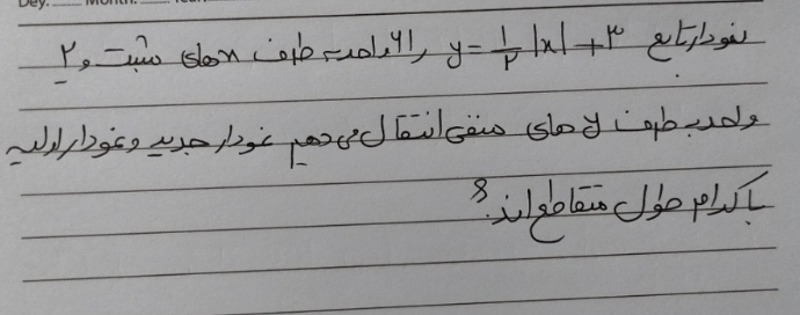 Dey: Month: Year:
نمودار تابع y = ۱/۲ |x| + ۳ را ۶ واحد به طرف xهای مثبت و ۲
واحد به طرف yهای منفی انتقال می‌دهیم نمودار جدید و نمودار اولیه
با کدام طول متقاطع‌اند؟